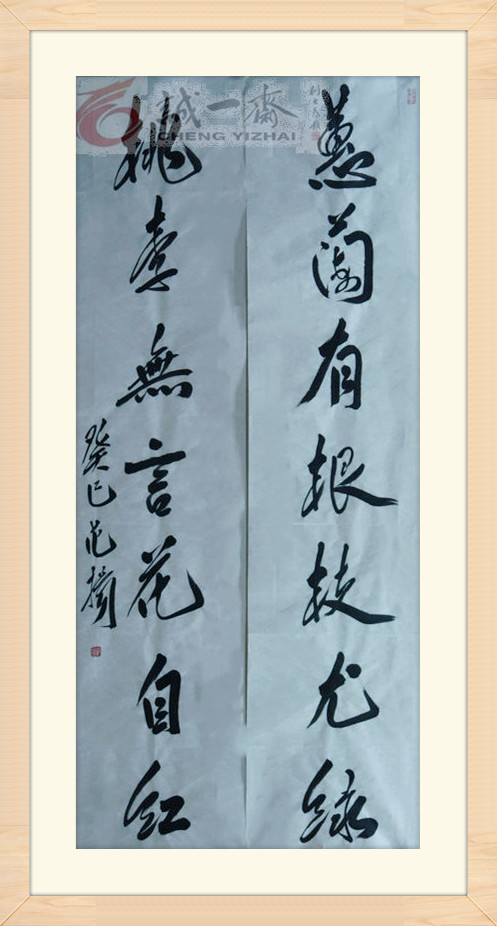 誠一齋
CHENG YIZHAI
蕙蘭有根枝尤绿
桃李無言花自红
癸巳范